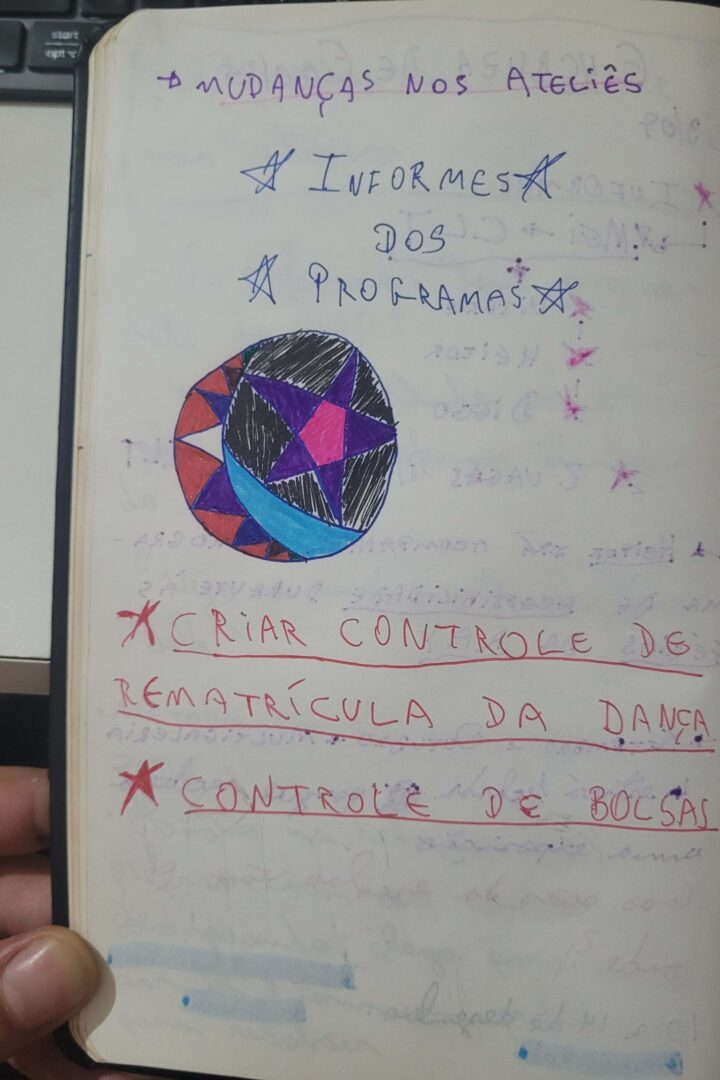 → MUDANÇAS NOS ATELIÊS
☆ INFORMES ☆
DOS
☆ PROGRAMAS ☆
★ CRIAR CONTROLE DE
REMATRÍCULA DA DANÇA
★ CONTROLE DE BOLSAS